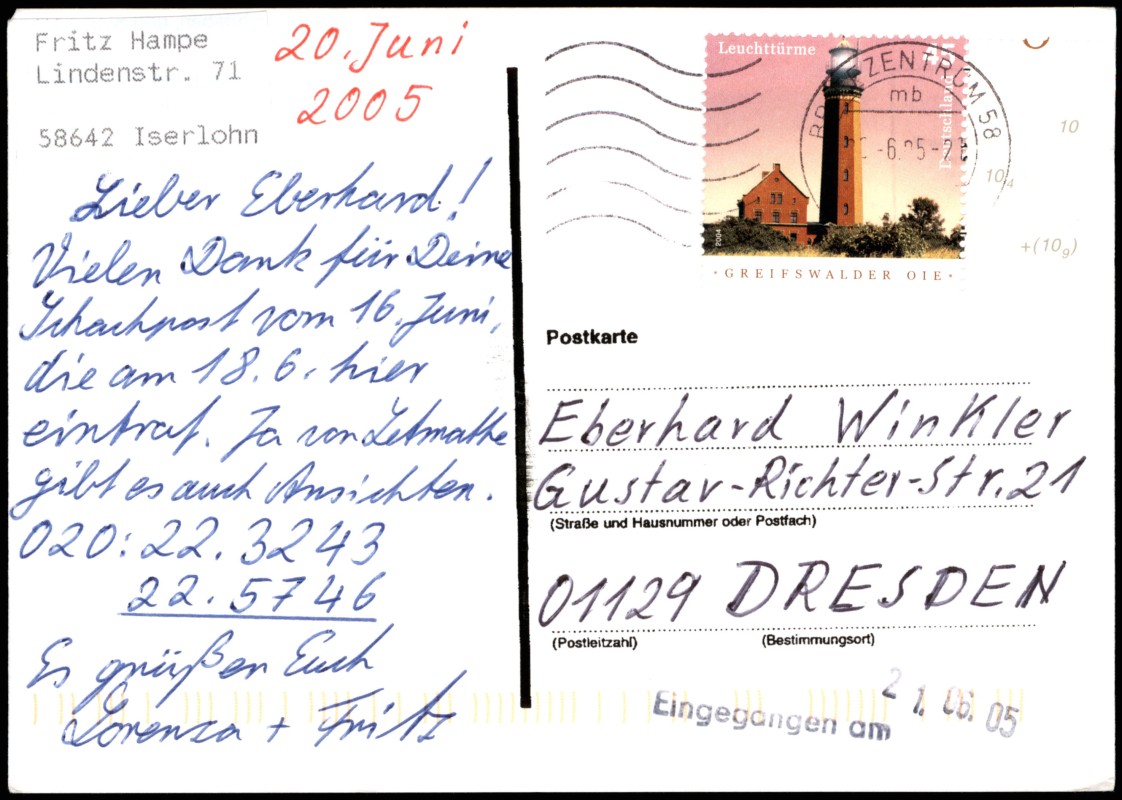 Fritz Hampe
Lindenstr. 71
58642 Iserlohn
20. Juni
2005
Lieber Eberhard!
Vielen Dank für Deine
Schachpost vom 16. Juni,
die am 18.6. hier
eintraf. Ja von Letmathe
gibt es auch Ansichten.
020: 22. 3243
22. 5746
Es grüßen Euch
Lorenza + Fritz
Leuchttürme
45
Deutschland
2004
·GREIFSWALDER OIE·
BRIEFZENTRUM 58
mb
-6.05-2
10
10₄
+(10g)
Postkarte
Eberhard Winkler
Gustav-Richter-Str. 21
(Straße und Hausnummer oder Postfach)
01129 DRESDEN
(Postleitzahl) (Bestimmungsort)
Eingegangen am 21. 06. 05